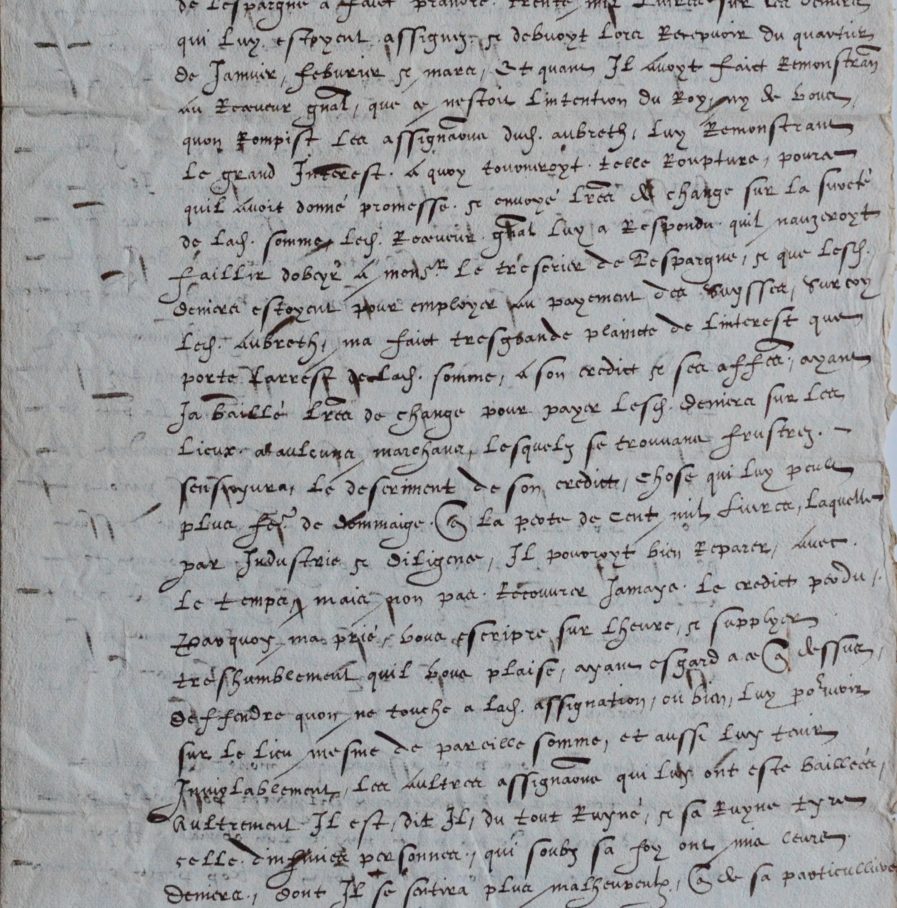 de Lespargne a faict prandre trente mil livres sur les deniers
qui luy estoyent assignez, se debvoyt lors Recepvoir du quartier
de Janvier, febvrier et mars, Et quant Il avoyt faict Remonstran
au Receveur gnal, que ce nestoit Lintention du Roy, ny de vous,
quon Rompist Les assignaons dud. aubreth, luy Remonstrant
Le grand Interest a quoy tourneroyt telle Roupture, pource
quil avoit donné promesse, et envoyé Lres de change sur la sureté
de lad. somme, Led. Receveur gnal luy a Respondu quil nauzeroyt
faillir dobeyr a monsr Le trésorier de Lespargne, et que lesd.
deniers estoyent pour employer au payement des Suysses, Surquoy
Led. Aubreth, ma faict tresgrande plaincte de Linterest que
porte Larrest de lad. somme, a son credict et ses affes, ayant
Ja baillé Lres de change pour payer lesd. deniers sur les
Lieux a aulcuns marchans, lesquelz se trouvans frustrez
sensuyvra, Le descriment de son credict, chose qui luy peult
plus fe. de dommaige, que La perte de Cent mil livres, Laquelle
par Industrie et diligence, Il pouroyt bien Reparer, avec
Le temps, mais non pas Recouvrer Jamays Le credict perdu,
Parquoy, ma prié, vous escripre sur lheure, et supplyer
tréshumblement quil vous plaise, ayant esgard a ce que dessus,
deffendre quon ne touche a lad. assignation, ou bien, luy pourvoir
sur Le Lieu mesme de pareille somme, et aussi luy tenir
Inviolablement, Les aultres assignaons qui luy ont esté baillées,
Aultrement Il est, dit Il, du tout Ruyné, et sa Ruyne tyre
celle dinfinies personnes, qui soubz sa foy ont mis leurs
deniers, dont Il se sentira plus malheureulx, que de sa particulliere